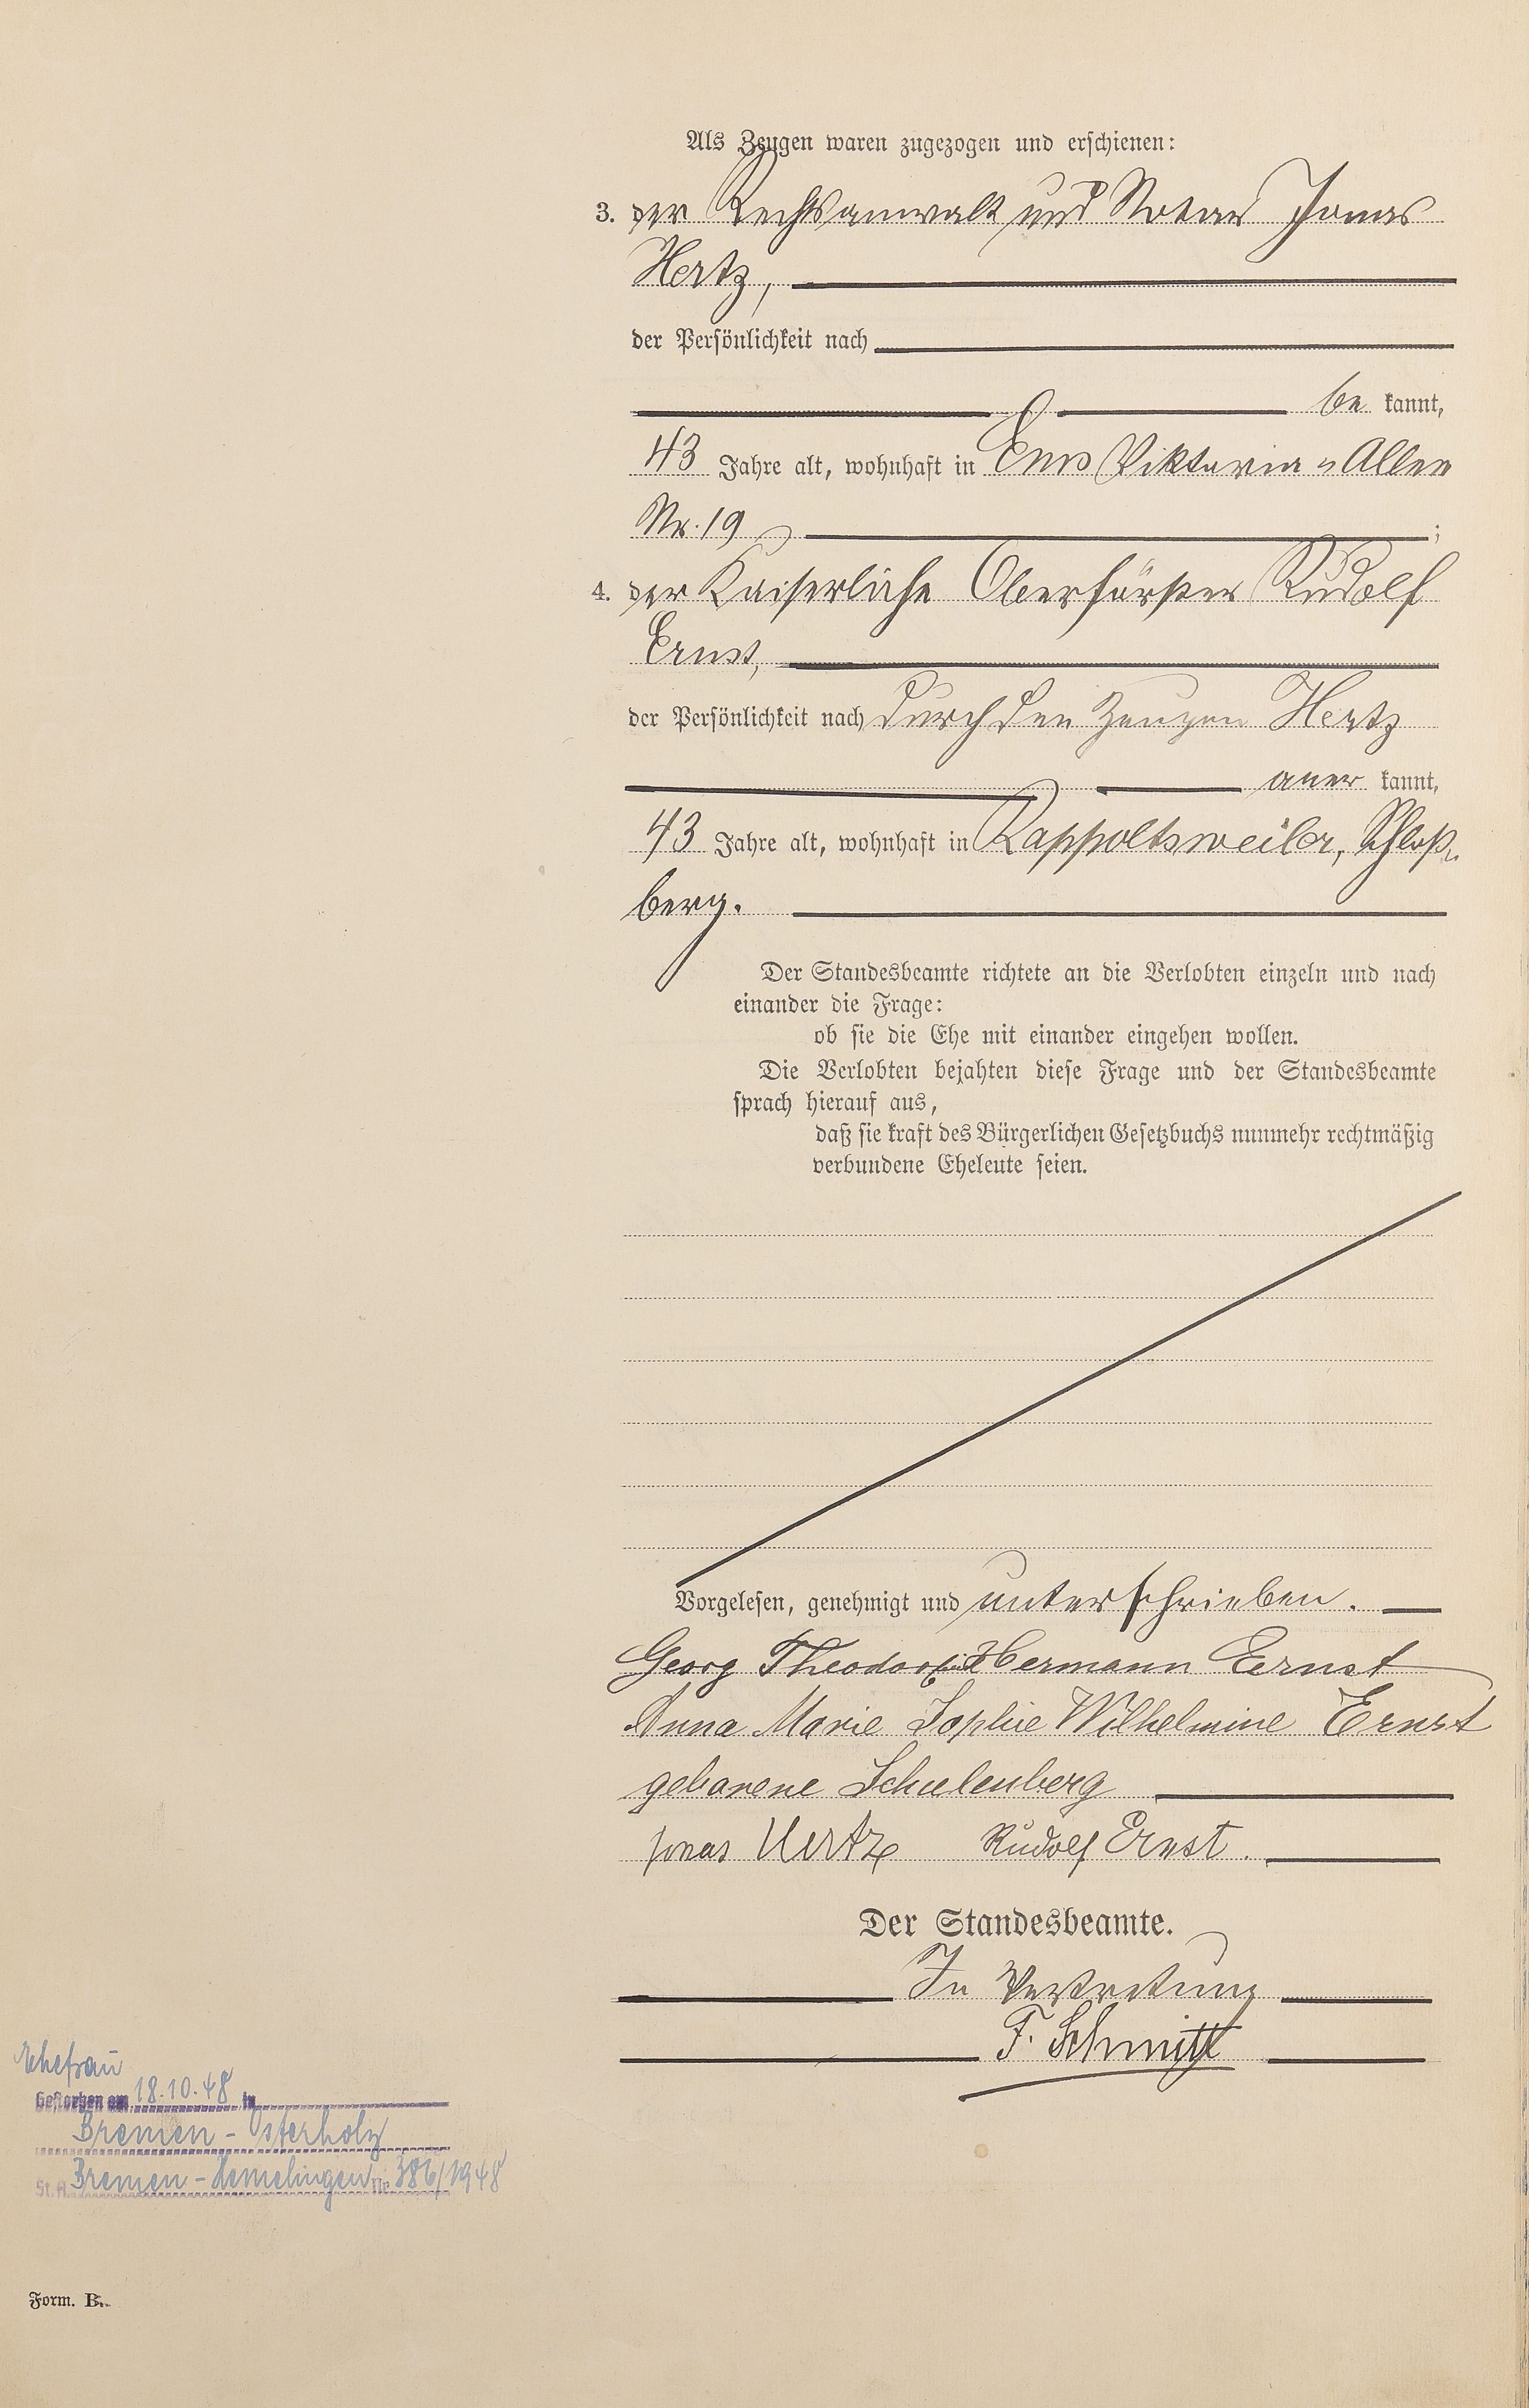 Als Zeugen waren zugezogen und erschienen:
3. der Rechtsanwalt und Notar Jonas
Hertz,
der Persönlichkeit nach
be kannt,
43 Jahre alt, wohnhaft in Ems Viktoria-Allee
Nr. 19 ;
4. der Kaiserliche Oberförster Rudolf
Ernst,
der Persönlichkeit nach durch den Zeugen Hertz
aner kannt,
43 Jahre alt, wohnhaft in Rappoltsweiler, Schloß-
berg.
Der Standesbeamte richtete an die Verlobten einzeln und nach
einander die Frage:
ob sie die Ehe mit einander eingehen wollen.
Die Verlobten bejahten diese Frage und der Standesbeamte
sprach hierauf aus,
daß sie kraft des Bürgerlichen Gesetzbuchs nunmehr rechtmäßig
verbundene Eheleute seien.
Vorgelesen, genehmigt und unterschrieben.
Georg Theodor Hermann Ernst
Anna Marie Sophie Wilhelmine Ernst
geborene Schulenberg
Jonas Hertz Rudolf Ernst.
Der Standesbeamte.
In Vertretung
F. Schmitt
Ehefrau
Gestorben am 18.10.48 in
Bremen-Osterholz
St. A. Bremen-Hemelingen Nr. 386/1948
Form. B.